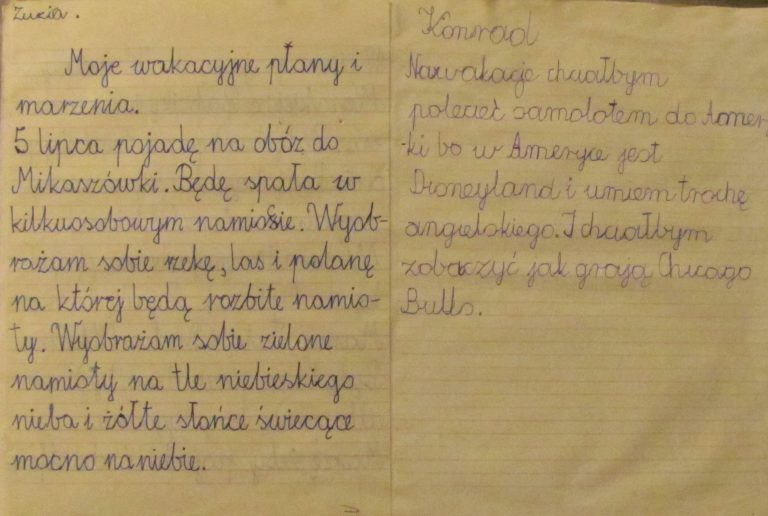 Zuzia.
Moje wakacyjne płany i
marzenia.
5 lipca pojadę na obóz do
Mikaszówki. Będę spała w
kilkuosobowym namiosie. Wyob-
rażam sobie rzekę, las i polanę
na której będą rozbite namio-
ty. Wyobrażam sobie zielone
namioty na tle niebieskiego
nieba i żółte słońce świecące
mocno na niebie.
Konrad
Na wakacje chciałbym
polecieć samolotem do Amery
-ki bo w Ameryce jest
Disneyland i umiem trochę
angielskiego. I chciałbym
zobaczyć jak grają Chicago
Bulls.